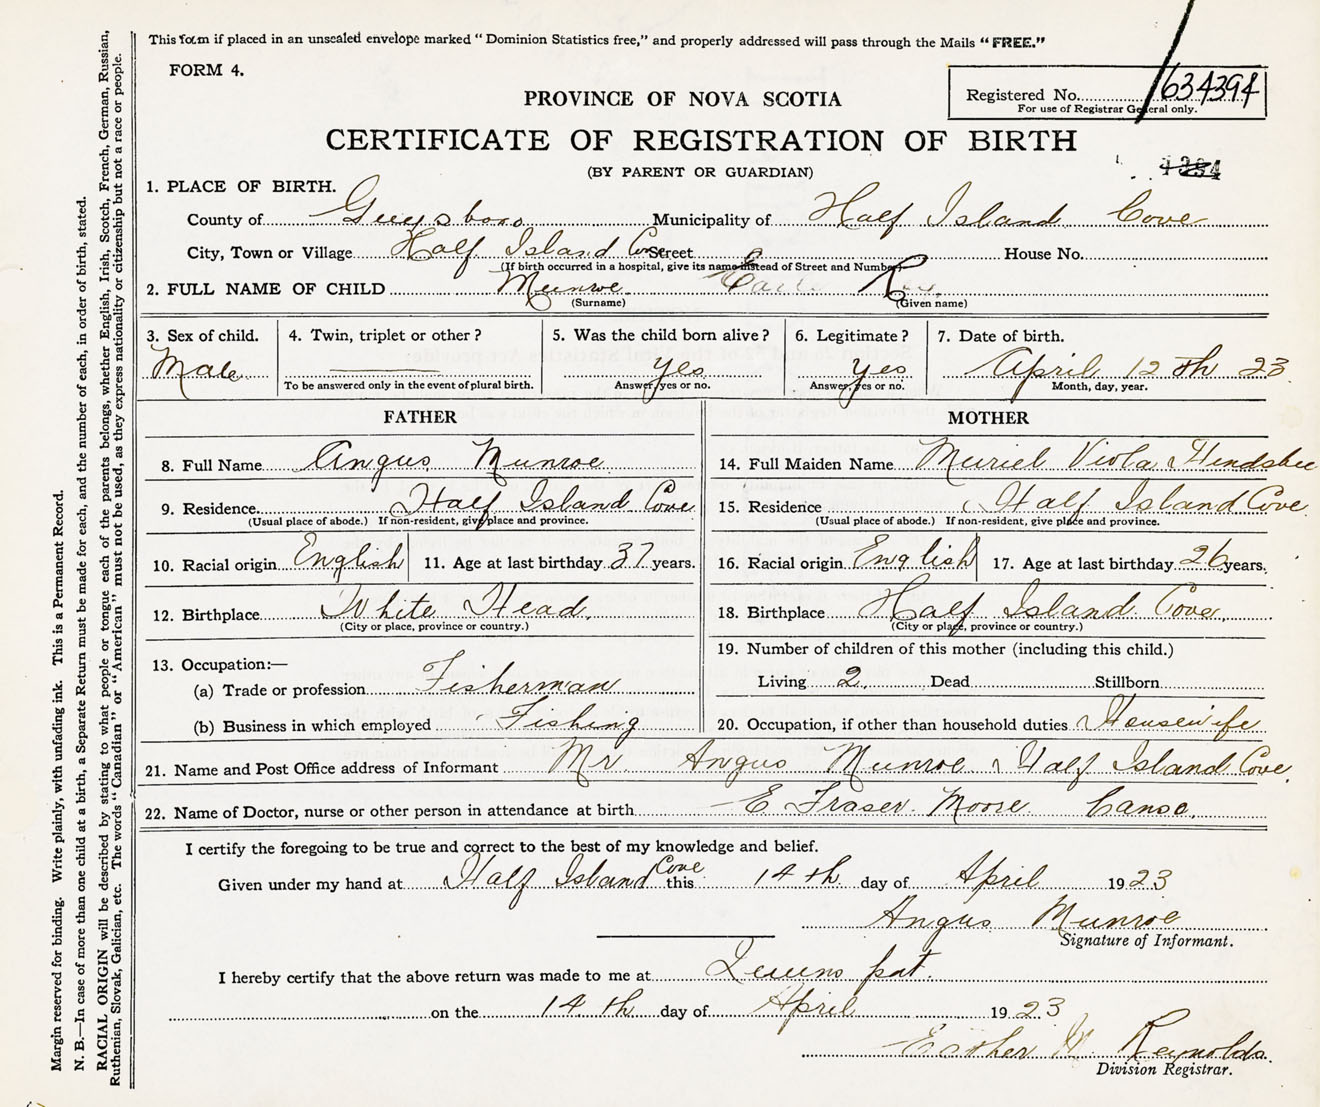 This form if placed in an unsealed envelope marked "Dominion Statistics free," and properly addressed will pass through the Mails "FREE."
FORM 4.
Registered No. 634394
For use of Registrar General only.
PROVINCE OF NOVA SCOTIA
CERTIFICATE OF REGISTRATION OF BIRTH
(BY PARENT OR GUARDIAN)
1. PLACE OF BIRTH.
County of Guysboro Municipality of Half Island Cove
City, Town or Village Half Island Cove Street House No.
(If birth occurred in a hospital, give its name instead of Street and Number)
2. FULL NAME OF CHILD Munroe
(Surname) (Given name)
3. Sex of child. Male
4. Twin, triplet or other?
To be answered only in the event of plural birth.
5. Was the child born alive? Yes
Answer, yes or no.
6. Legitimate? Yes
Answer, yes or no.
7. Date of birth. April 12th 23
Month, day, year.
FATHER
8. Full Name Angus Munroe
9. Residence Half Island Cove
(Usual place of abode.) If non-resident, give place and province.
10. Racial origin English 11. Age at last birthday 37 years.
12. Birthplace White Head
(City or place, province or country.)
13. Occupation:—
(a) Trade or profession Fisherman
(b) Business in which employed Fishing
MOTHER
14. Full Maiden Name Muriel Viola Hendsbee
15. Residence Half Island Cove
(Usual place of abode.) If non-resident, give place and province.
16. Racial origin English 17. Age at last birthday 26 years.
18. Birthplace Half Island Cove
(City or place, province or country.)
19. Number of children of this mother (including this child.)
Living 2 Dead Stillborn
20. Occupation, if other than household duties Housewife
21. Name and Post Office address of Informant Mr. Angus Munroe Half Island Cove
22. Name of Doctor, nurse or other person in attendance at birth E. Fraser Moore Canso
I certify the foregoing to be true and correct to the best of my knowledge and belief.
Given under my hand at Half Island Cove this 14th day of April 1923
Angus Munroe
Signature of Informant.
I hereby certify that the above return was made to me at
on the 14th day of April 1923
Reynolds
Division Registrar.
Margin reserved for binding. Write plainly, with unfading ink. This is a Permanent Record.
N. B.—In case of more than one child at a birth, a Separate Return must be made for each, and the number of each, in order of birth, stated.
RACIAL ORIGIN will be described by stating to what people or tongue each of the parents belongs, whether English, Irish, Scotch, French, German, Russian,
Ruthenian, Slovak, Galician, etc. The words "Canadian" or "American" must not be used, as they express nationality or citizenship but not a race or people.